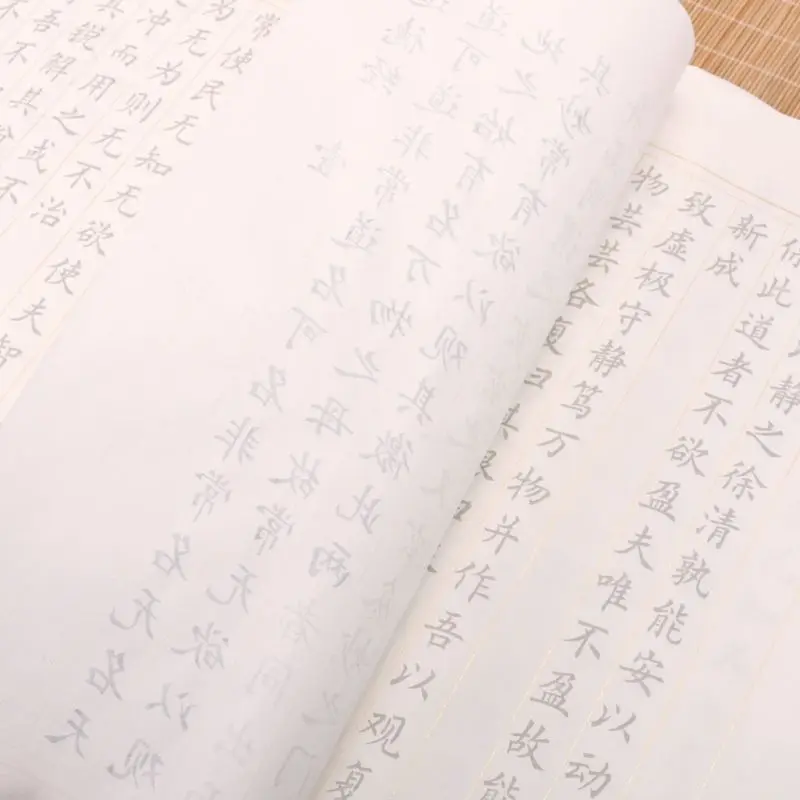 静之徐清孰能安以动
保此道者不欲盈夫唯不盈故能
新成
致虚极守静笃万物并作吾以观复
物芸芸各复
道德经 壹
道可道非常道名可名非常名无名天
地之始有名万物之母故常无欲以观
其妙常有欲以观其徼此两者同出
常使民无知无欲使夫智
为无为则无不治
冲而用之或不
其锐解其纷
吾不